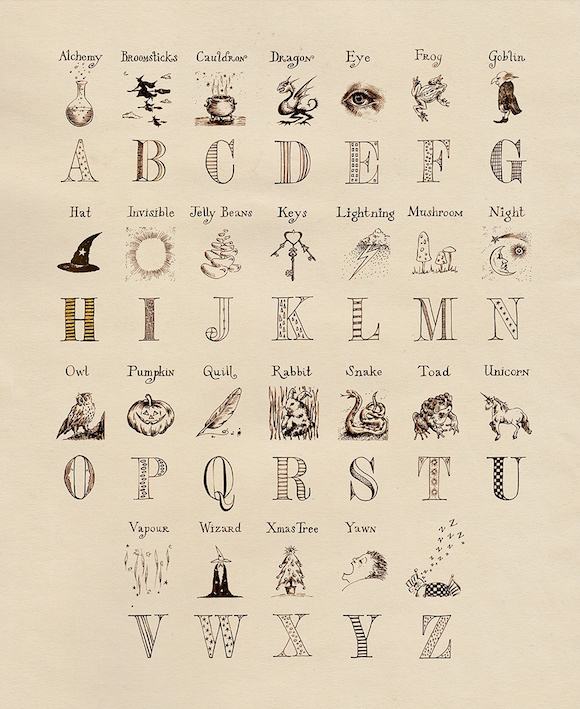 Alchemy Broomsticks Cauldron Dragon Eye Frog Goblin
A B C D E F G
Hat Invisible Jelly Beans Keys Lightning Mushroom Night
H I J K L M N
Owl Pumpkin Quill Rabbit Snake Toad Unicorn
O P Q R S T U
Vapour Wizard Xmas Tree Yawn
z z z z z z z z
V W X Y Z